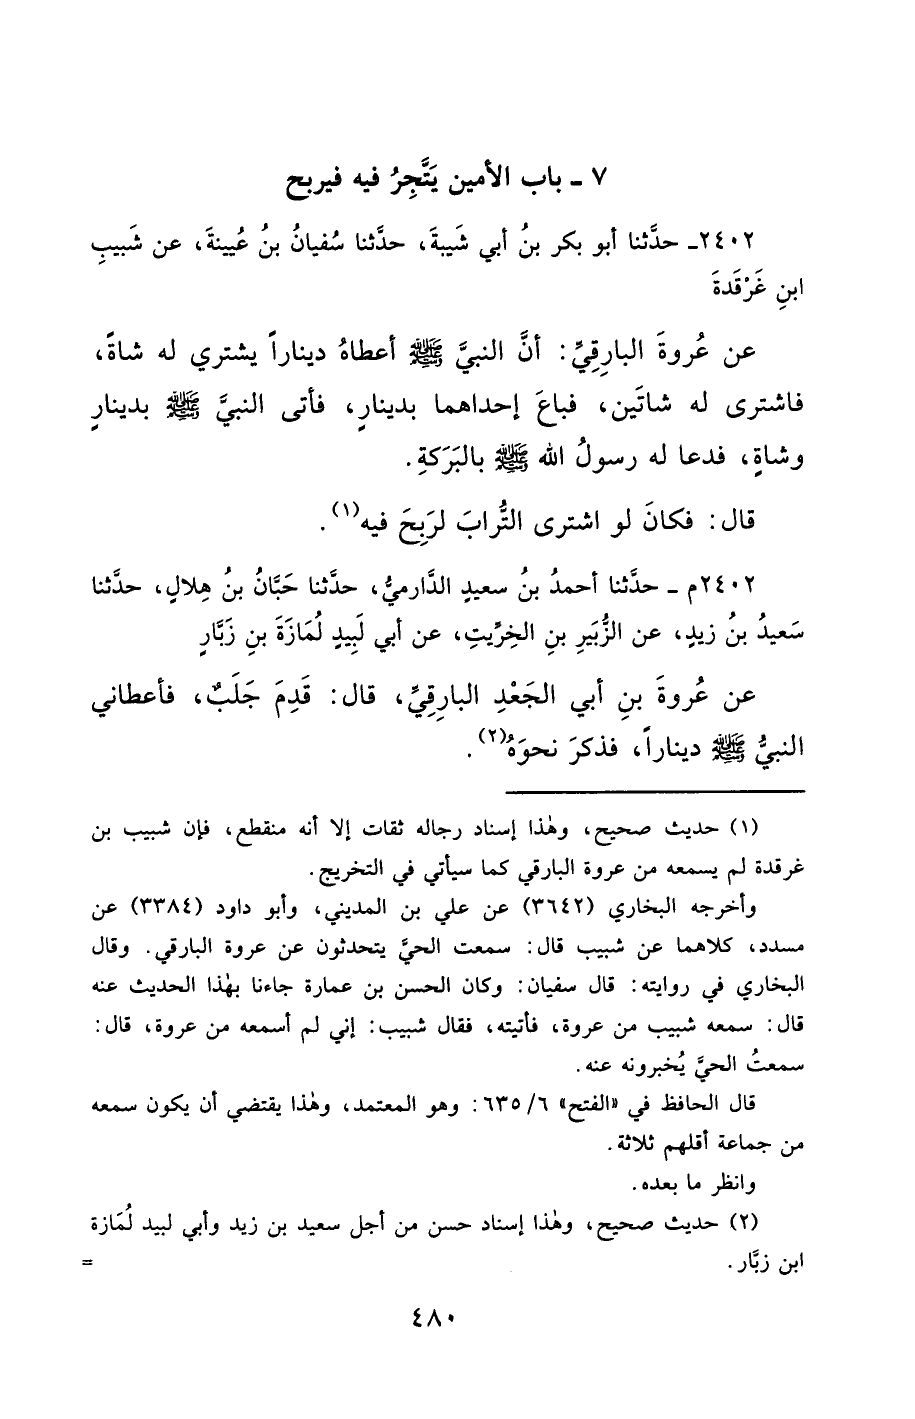 ٧ ـ باب الأمين يَتَّجِرُ فيه فيربح
٢٤٠٢ـ حدَّثنا أبو بكر بنُ أبي شَيبةَ، حدَّثنا سُفيانُ بنُ عُيينةَ، عن شَبيبِ
ابنِ غَرْقَدةَ
عن عُروةَ البارِقِيِّ: أنَّ النبيَّ ﷺ أعطاهُ ديناراً يشتري له شاةً،
فاشترى له شاتَين، فباعَ إحداهما بدينارٍ، فأتى النبيَّ ﷺ بدينارٍ
وشاةٍ، فدعا له رسولُ الله ﷺ بالبَرَكةِ.
قال: فكانَ لو اشترى التُّرابَ لرَبِحَ فيه(١).
٢٤٠٢م ـ حدَّثنا أحمدُ بنُ سعيدٍ الدَّارميُّ، حدَّثنا حَبَّانُ بنُ هِلالٍ، حدَّثنا
سَعيدُ بنُ زيدٍ، عن الزُّبَيرِ بنِ الخِرِّيتِ، عن أبي لَبِيدٍ لُمَازَةَ بنِ زَبَّارٍ
عن عُروةَ بنِ أبي الجَعْدِ البارِقِيِّ، قال: قَدِمَ جَلَبٌ، فأعطاني
النبيُّ ﷺ ديناراً، فذكرَ نحوَهُ(٢).
(١) حديث صحيح، وهٰذا إسناد رجاله ثقات إلا أنه منقطع، فإن شبيب بن
غرقدة لم يسمعه من عروة البارقي كما سيأتي في التخريج.
وأخرجه البخاري (٣٦٤٢) عن علي بن المديني، وأبو داود (٣٣٨٤) عن
مسدد، كلاهما عن شبيب قال: سمعت الحيَّ يتحدثون عن عروة البارقي. وقال
البخاري في روايته: قال سفيان: وكان الحسن بن عمارة جاءنا بهٰذا الحديث عنه
قال: سمعه شبيب من عروة، فأتيته، فقال شبيب: إني لم أسمعه من عروة، قال:
سمعتُ الحيَّ يُخبرونه عنه.
قال الحافظ في «الفتح» ٦/ ٦٣٥: وهو المعتمد، وهٰذا يقتضي أن يكون سمعه
من جماعة أقلهم ثلاثة.
وانظر ما بعده.
(٢) حديث صحيح، وهٰذا إسناد حسن من أجل سعيد بن زيد وأبي لبيد لُمَازة
ابن زبَّار. =
٤٨٠